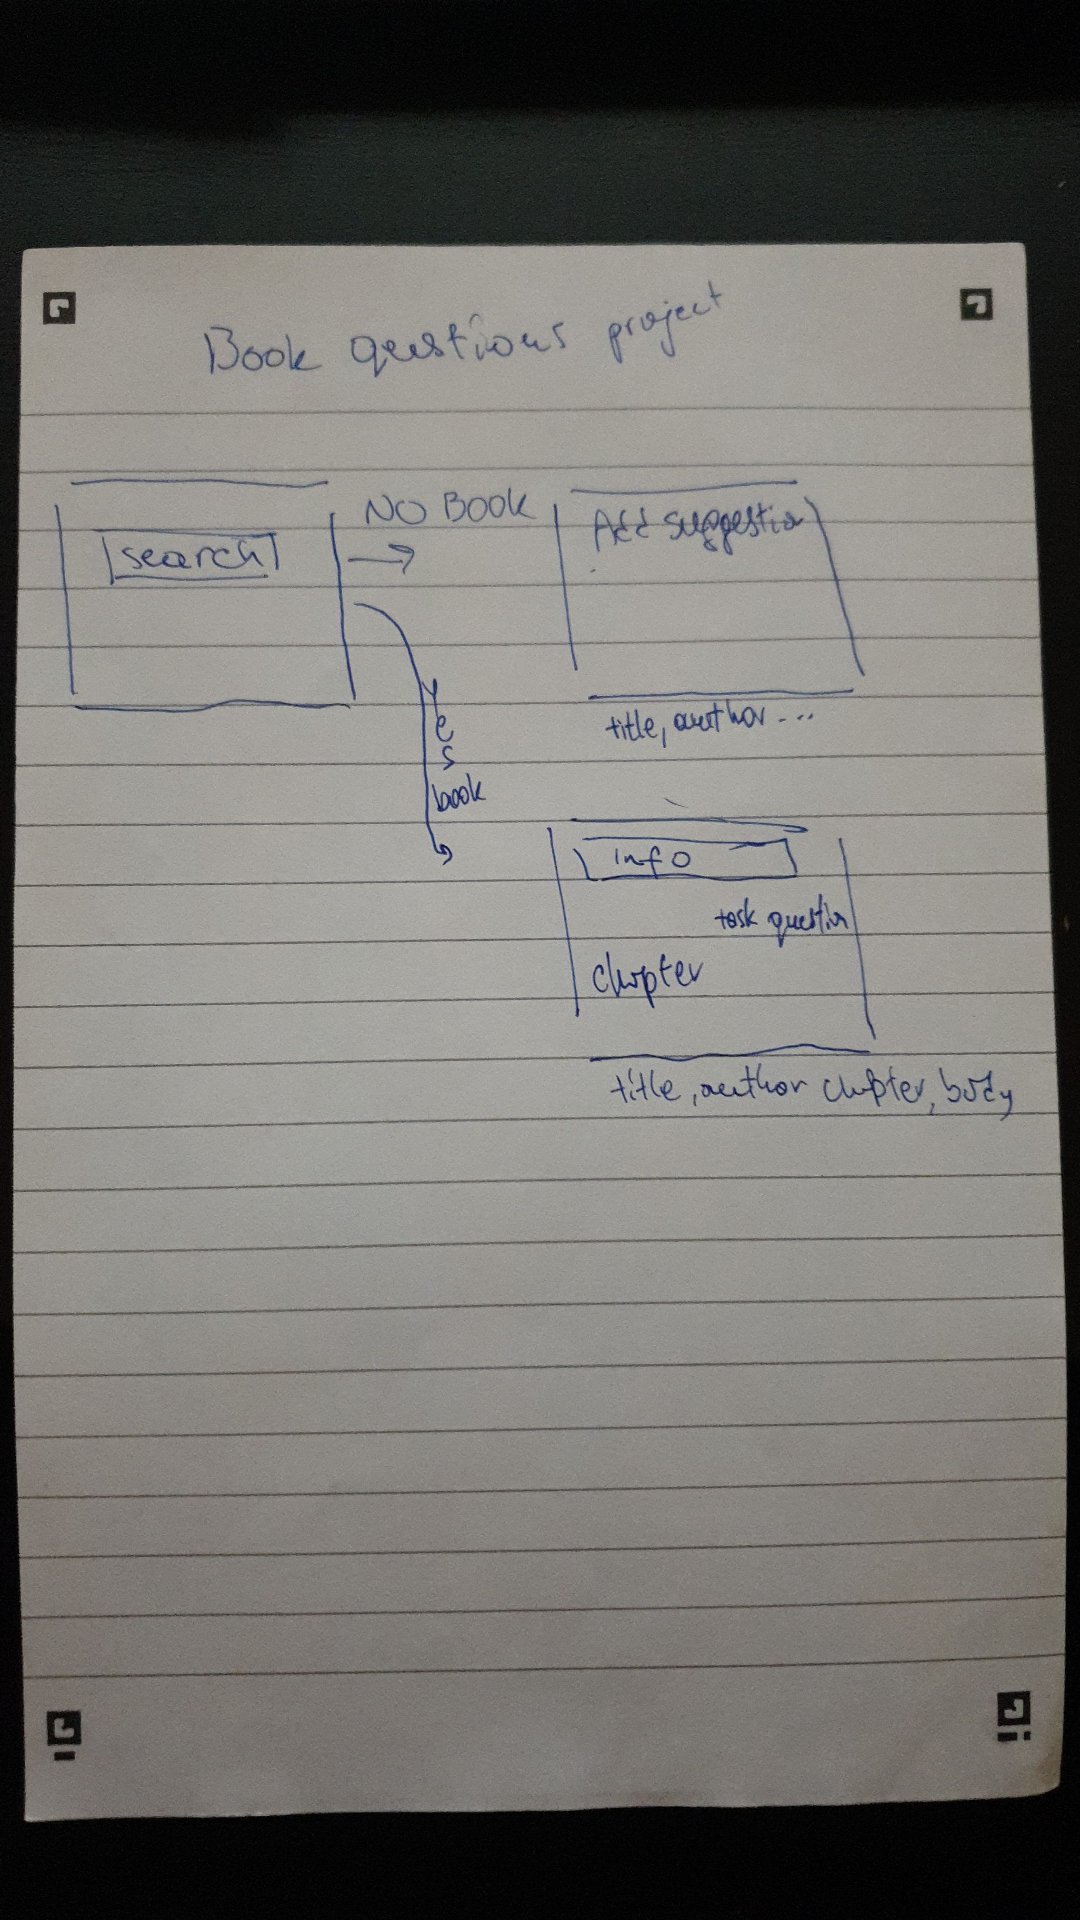 Book questions project
search
NO BOOK
Add suggestion
title, author ...
Yes
book
info
task question
chapter
title, author chapter, body